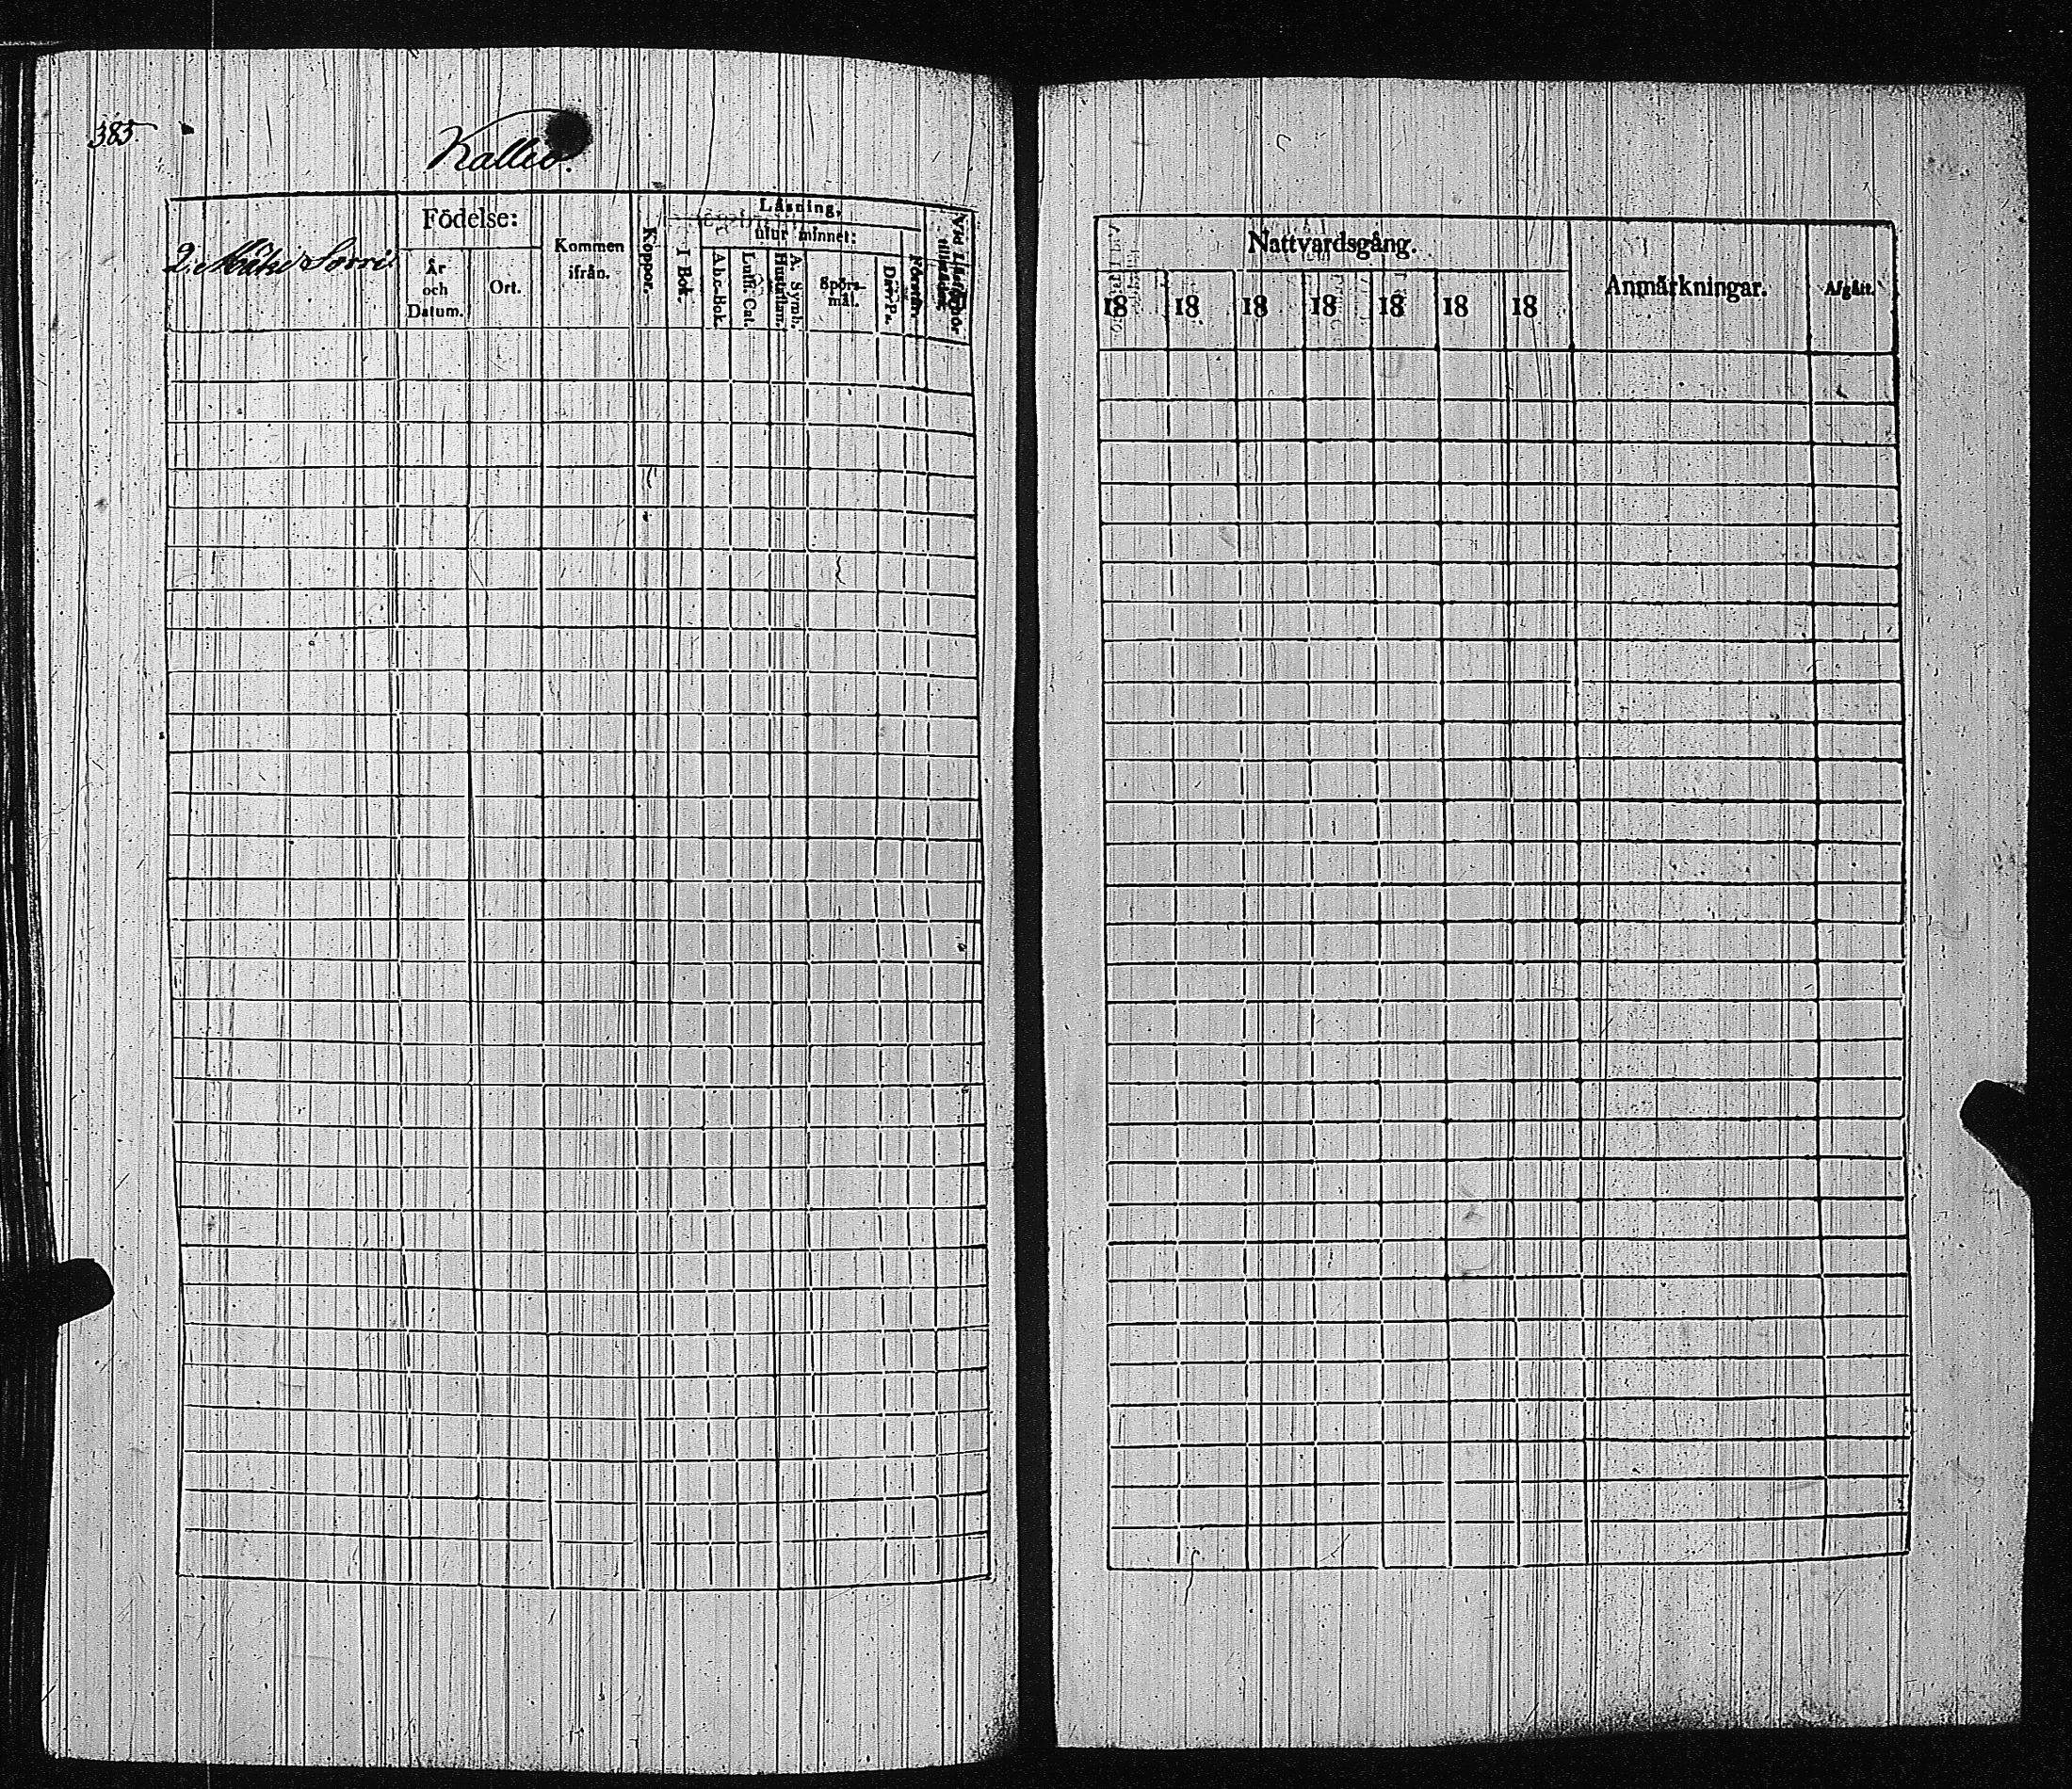 383.
Kallio.
2. Mäki Sorri.
Födelse:
År och Datum.
Ort.
Kommen ifrån.
Koppor.
Läsning,
utur minnet:
I Bok.
A.b.c.-Bok.
Luth. Cat.
A. Symb. Hustaflan.
Spörsmål.
Dav. Ps.
Förstår.
Vid Läsförhör tillstädes.
Nattvardsgång.
18 18 18 18 18 18 18
Anmärkningar.
Afgått.